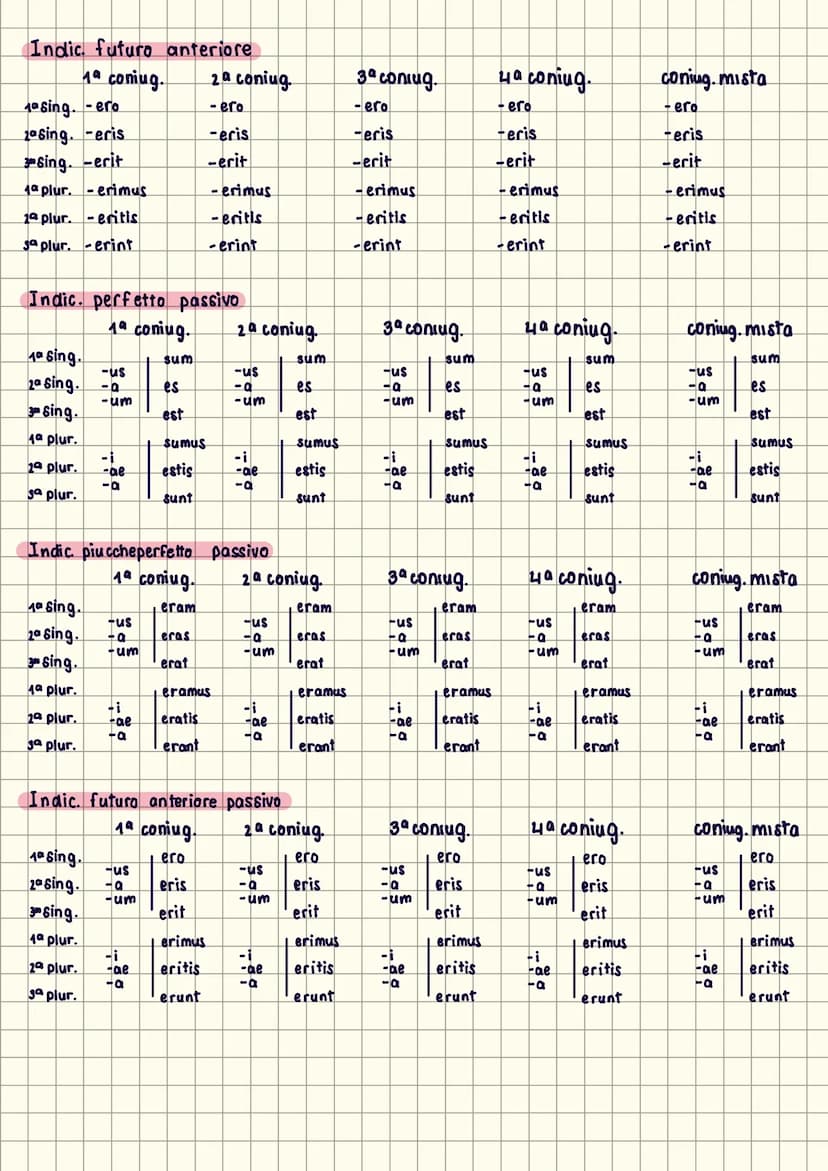 Indic. futuro anteriore
1ª coniug. 2ª coniug. 3ª coniug. 4ª coniug. coniug. mista
1ª sing. -ero -ero -ero -ero -ero
2ª sing. -eris -eris -eris -eris -eris
3ª sing. -erit -erit -erit -erit -erit
1ª plur. -erimus -erimus -erimus -erimus -erimus
2ª plur. -eritis -eritis -eritis -eritis -eritis
3ª plur. -erint -erint -erint -erint -erint
Indic. perfetto passivo
1ª coniug. 2ª coniug. 3ª coniug. 4ª coniug. coniug. mista
1ª sing. sum sum sum sum sum
-us -us -us -us -us
2ª sing. -a es -a es -a es -a es -a es
-um -um -um -um -um
3ª sing. est est est est est
1ª plur. sumus sumus sumus sumus sumus
-i -i -i -i -i
2ª plur. -ae estis -ae estis -ae estis -ae estis -ae estis
-a -a -a -a -a
3ª plur. sunt sunt sunt sunt sunt
Indic. piuccheperfetto passivo
1ª coniug. 2ª coniug. 3ª coniug. 4ª coniug. coniug. mista
1ª sing. eram eram eram eram eram
-us -us -us -us -us
2ª sing. -a eras -a eras -a eras -a eras -a eras
-um -um -um -um -um
3ª sing. erat erat erat erat erat
1ª plur. eramus eramus eramus eramus eramus
-i -i -i -i -i
2ª plur. -ae eratis -ae eratis -ae eratis -ae eratis -ae eratis
-a -a -a -a -a
3ª plur. erant erant erant erant erant
Indic. futuro anteriore passivo
1ª coniug. 2ª coniug. 3ª coniug. 4ª coniug. coniug. mista
1ª sing. ero ero ero ero ero
-us -us -us -us -us
2ª sing. -a eris -a eris -a eris -a eris -a eris
-um -um -um -um -um
3ª sing. erit erit erit erit erit
1ª plur. erimus erimus erimus erimus erimus
-i -i -i -i -i
2ª plur. -ae eritis -ae eritis -ae eritis -ae eritis -ae eritis
-a -a -a -a -a
3ª plur. erunt erunt erunt erunt erunt